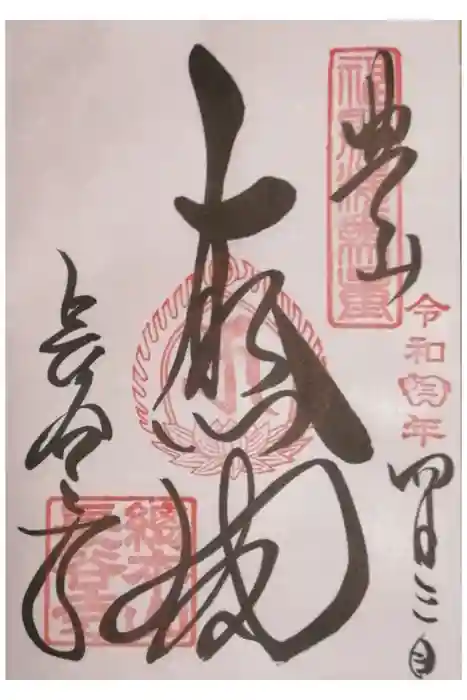 豊山
令和年
四月三日
大悲閣
長谷寺
總本山
長谷寺